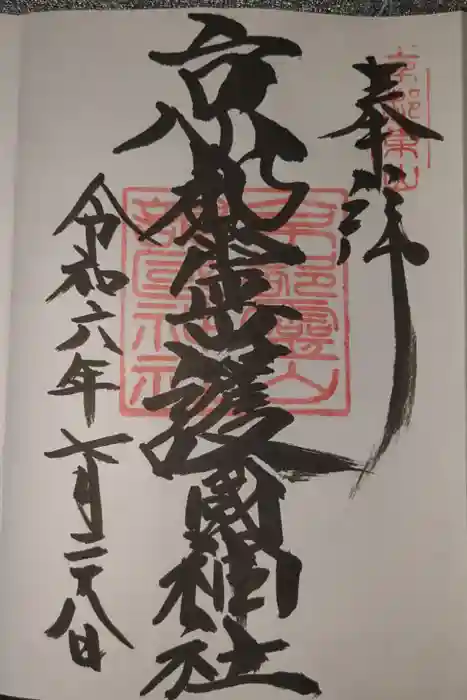 京都東山
奉拝
京都霊山護國神社
京都霊山護國神社
令和六年六月二十八日